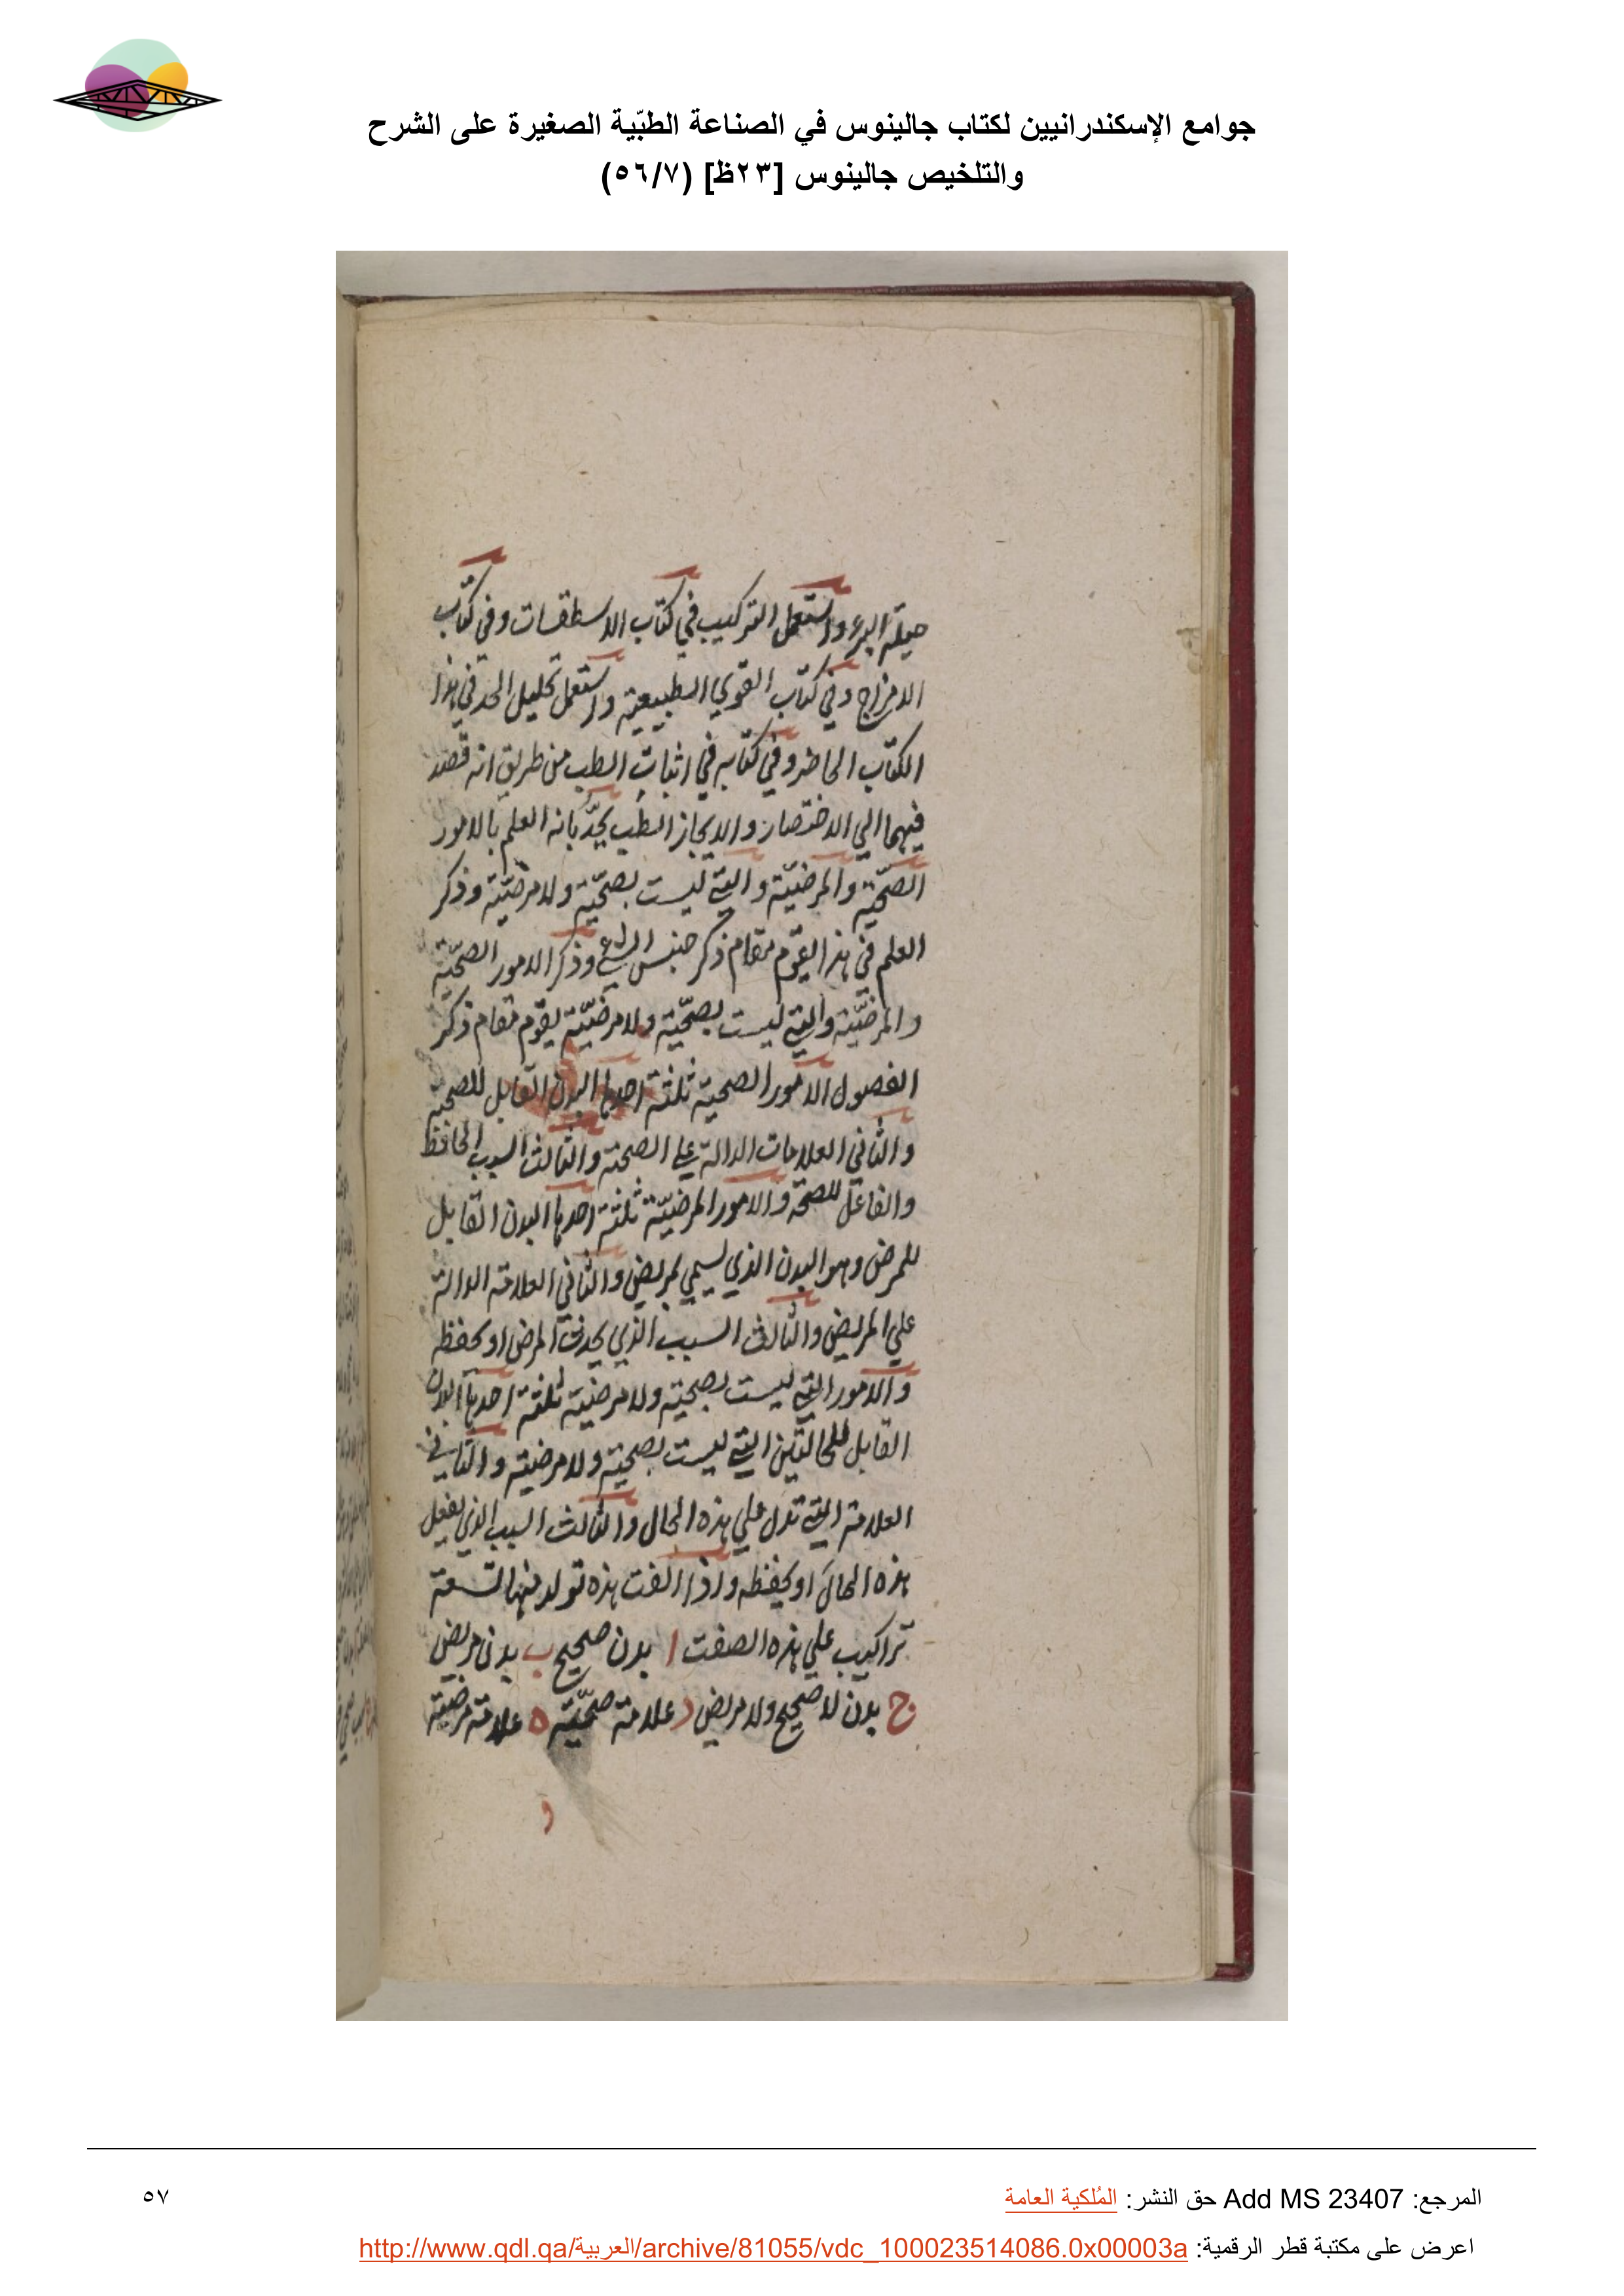 جوامع الإسكندرانيين لكتاب جالينوس في الصناعة الطبّية الصغيرة على الشرح
والتلخيص جالينوس [٢٣ظ] (٥٦/٧)
حيلة البرء واستعمل التركيب في كتاب الاسطقسات وفي كتاب
الامزاج وفي كتاب القوي الطبيعية واستعمل تحليل الحد في هذا
الكتاب الحاضر وفي كتابه في اثبات الطب من طريق انه قصد
فيهما الي الاختصار والايجاز الطب يحدّ بانه العلم بالامور
الصّحيّة والمرضيّة والتي ليست بصحّية ولا مرضيّة وذكر
العلم في هذا يقوم مقام ذكر جنس الشي وذكر الامور الصّحيّة
والمرضيّة والتي ليست بصحّية ولا مرضيّة يقوم مقام ذكر
الفصول الامور الصحية ثلثة احدها البدن القابل للصحة
والثاني العلامات الدالة علي الصحة والثالث السبب الحافظ
والفاعل للصحة والامور المرضيّة ثلثة احدها البدن القابل
للمرض وهو البدن الذي يسمي بمريض والثاني العلامة الدالة
علي المريض والثالث السبب الذي يحدث المرض او يحفظه
والامور التي ليست بصحية ولا مرضية ثلثة احدها البدن
القابل للحالتين التي ليست بصحية ولا مرضية والثاني
العلامة التي تدل علي هذه الحال والثالث السبب الذي يفعل
هذه الحال او يحفظه واذا الفت هذه تولد منها تسعة
تراكيب علي هذه الصفت ا بدن صحيح ب بدن مريض
ج بدن لا صحيح ولا مريض د علامة صحّيّة ه علامة مرضية
و
المرجع: Add MS 23407 حق النشر: المُلكية العامة
٥٧
اعرض على مكتبة قطر الرقمية: http://www.qdl.qa/العربية/archive/81055/vdc_100023514086.0x00003a